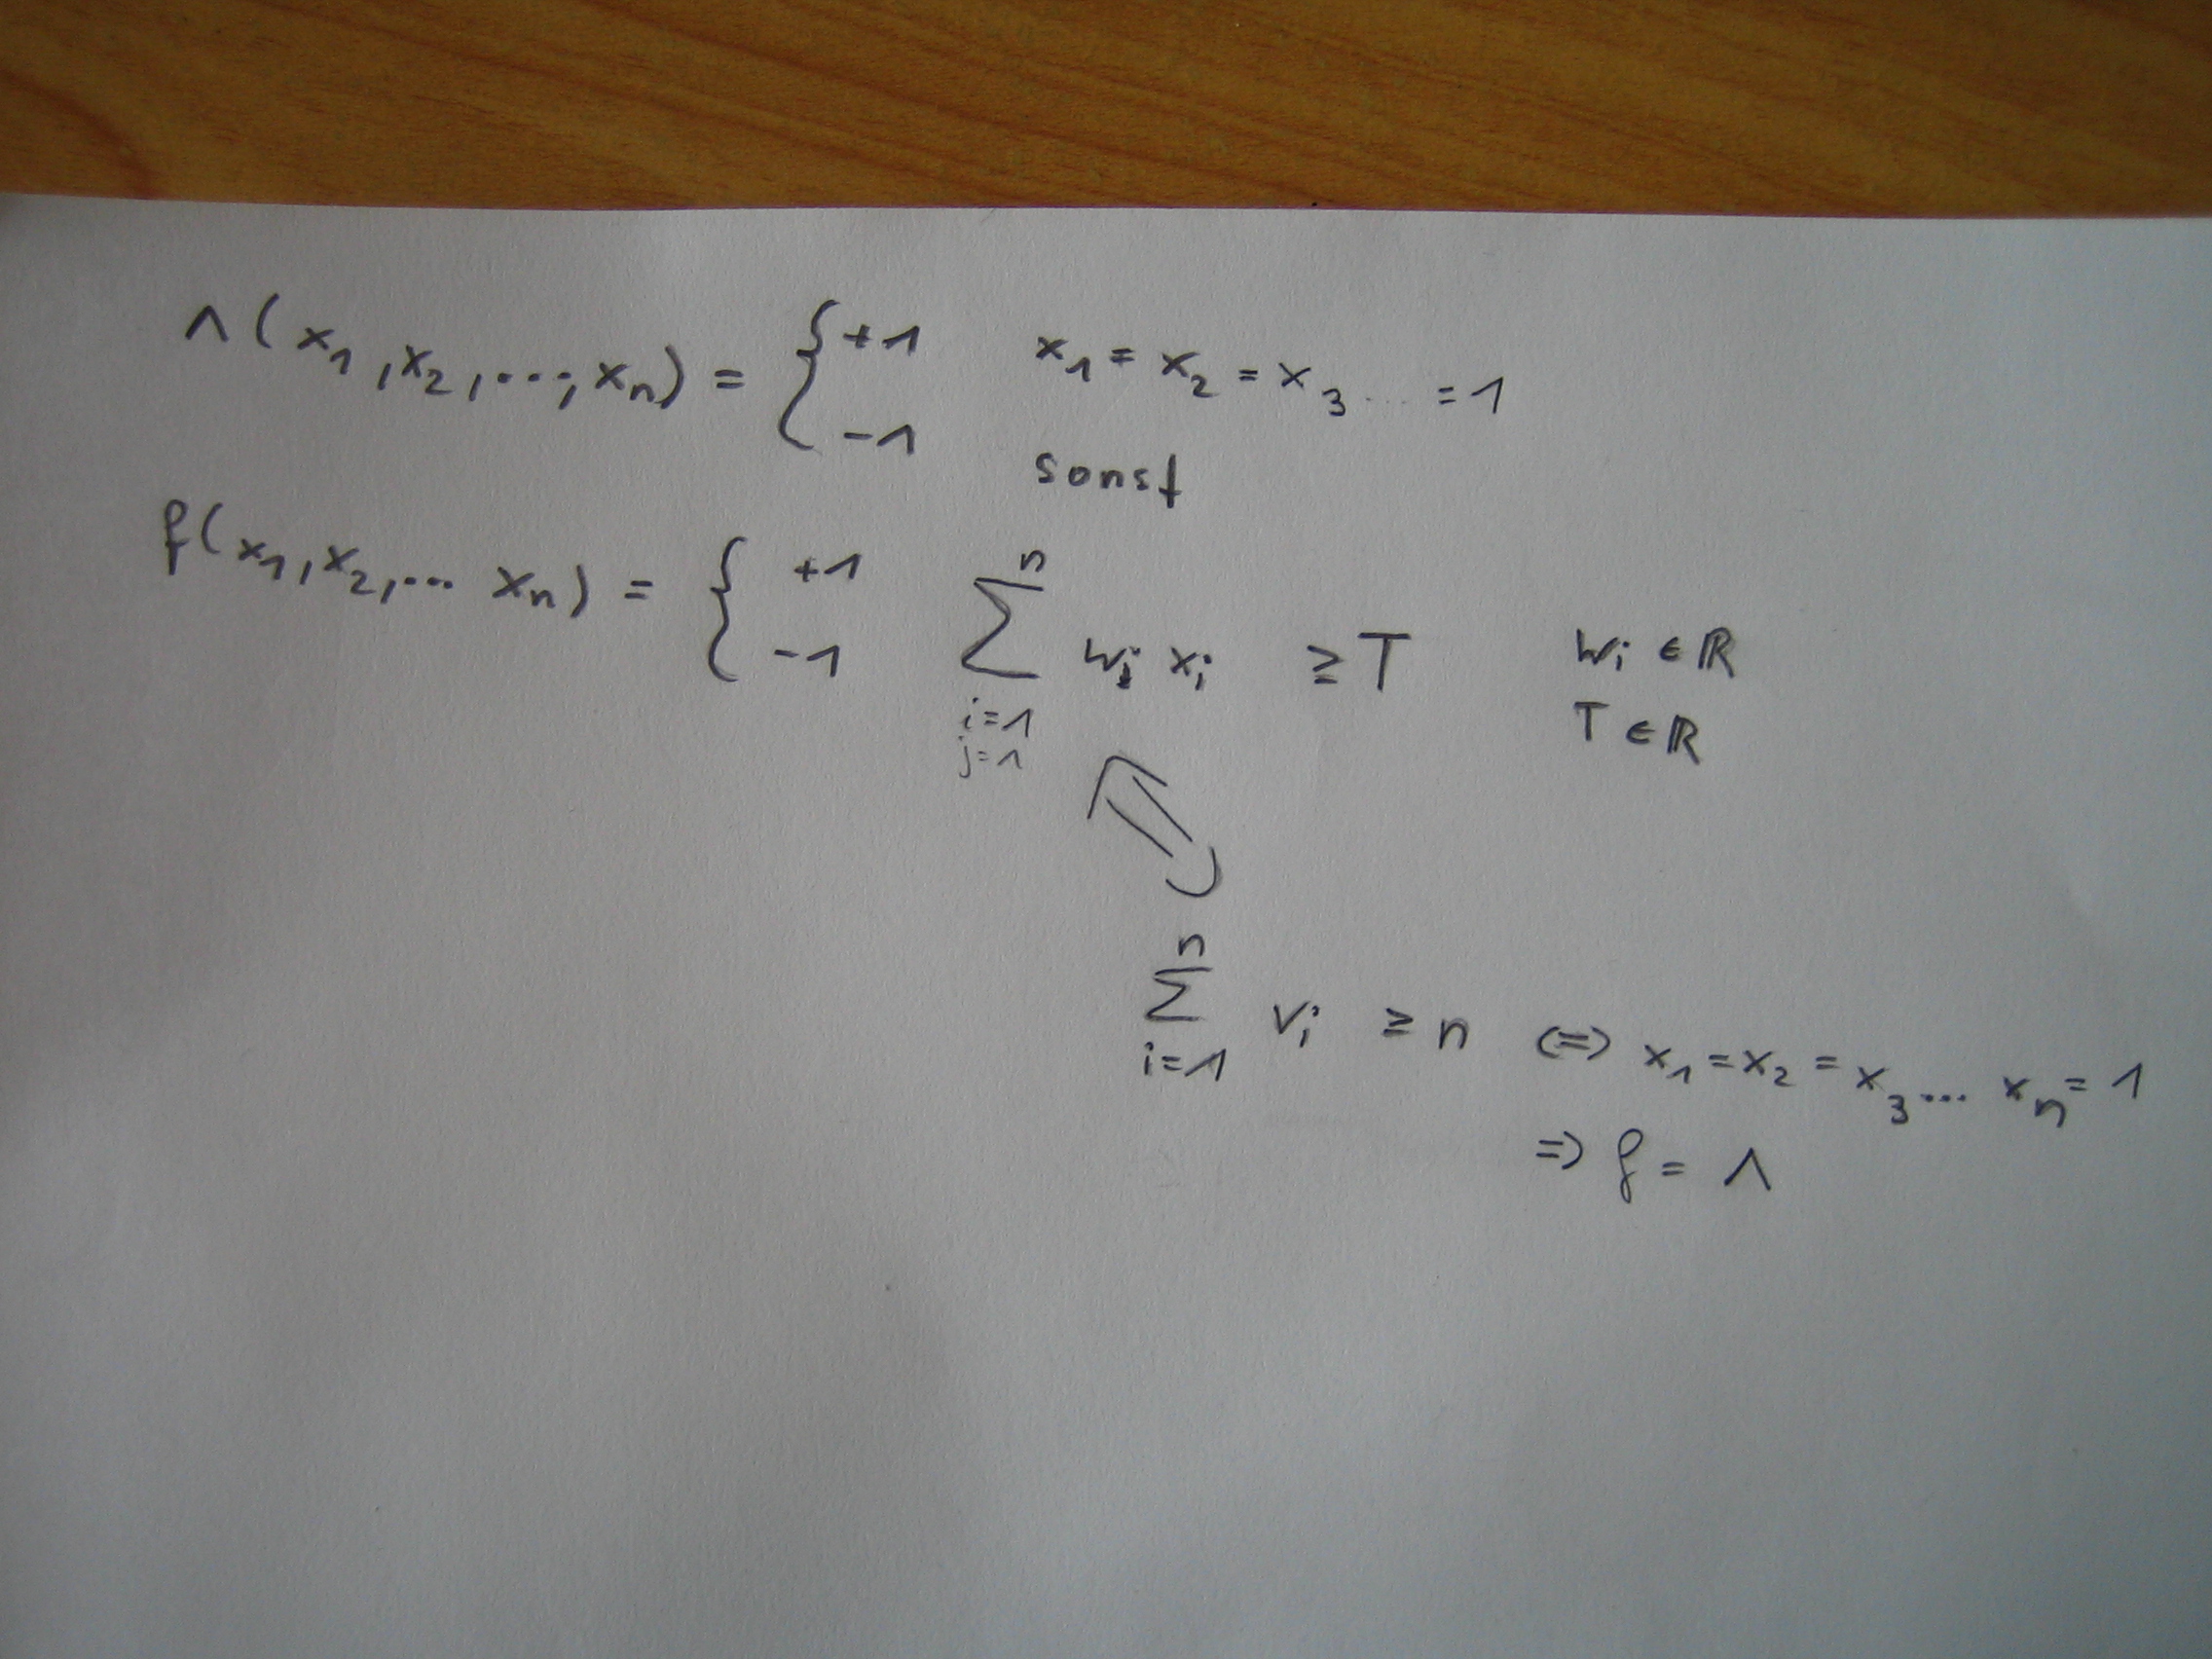 ∧(x₁,x₂,...,xₙ) = { +1 x₁ = x₂ = x₃ .... = 1
-1 sonst
f(x₁,x₂,... xₙ) = { +1
-1 ∑ⁿ i=1 j=1 wᵢ xᵢ ≥ T wᵢ ∈ ℝ
T ∈ ℝ
∑ⁿ i=1 vᵢ ≥ n <=> x₁ = x₂ = x₃ ... xₙ = 1
=> f = ∧